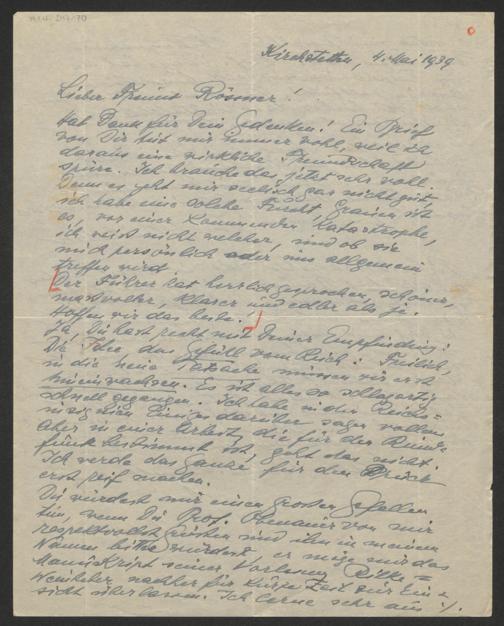 Kirchstetten, 4. Mai 1939
Lieber Freund Rössner!
Hab Dank für Dein Gedenken! Ein Brief
von Dir tut mir immer wohl, weil ich
daraus eine wirkliche Freundschaft
spüre. Ich brauche das jetzt sehr
Denn es geht mir seelisch gar nicht gut.
ich habe eine solche Furcht, Grauen ist
es, vor einer kommenden Katastrophe,
ich weiß nicht welcher, und ob sie
mich persönlich oder uns allgemein
treffen wird.
Der Führer hat herrlich gesprochen, schöner,
maßvoller, klarer und edler als je.
Hoffen wir das beste!
Ja, Du hast recht mit Deiner Empfindung:
Die Idee, das Gefühl vom Reich! Freilich,
in die neue Tatsache müssen wir erst
hineinwachsen. Es ist alles so schlagartig
schnell gegangen. Ich habe in der
einiges darüber sagen wollen
Aber in einer Arbeit, die für den Rund=
funk bestimmt ist, geht das nicht.
Ich werde das Ganze für den Druck
erst reif machen.
Du würdest mir einen großen Gefallen
tun, wenn Du Prof. Obenauer von mir
respektvollst grüßen und ihn in meinem
Namen bitten würdest, er möge mir das
Manuskript seiner Vorlesung Rilke=
Weinheber nachher für kurze Zeit zur Ein=
sicht überlassen. Ich lerne sehr aus